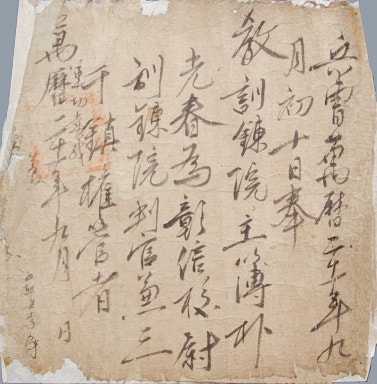 兵曹萬曆二十年九
月初十日奉
教訓鍊院主簿朴
光春為彰信校尉
訓鍊院判官兼三
千鎮權管者
萬曆二十年九月　日